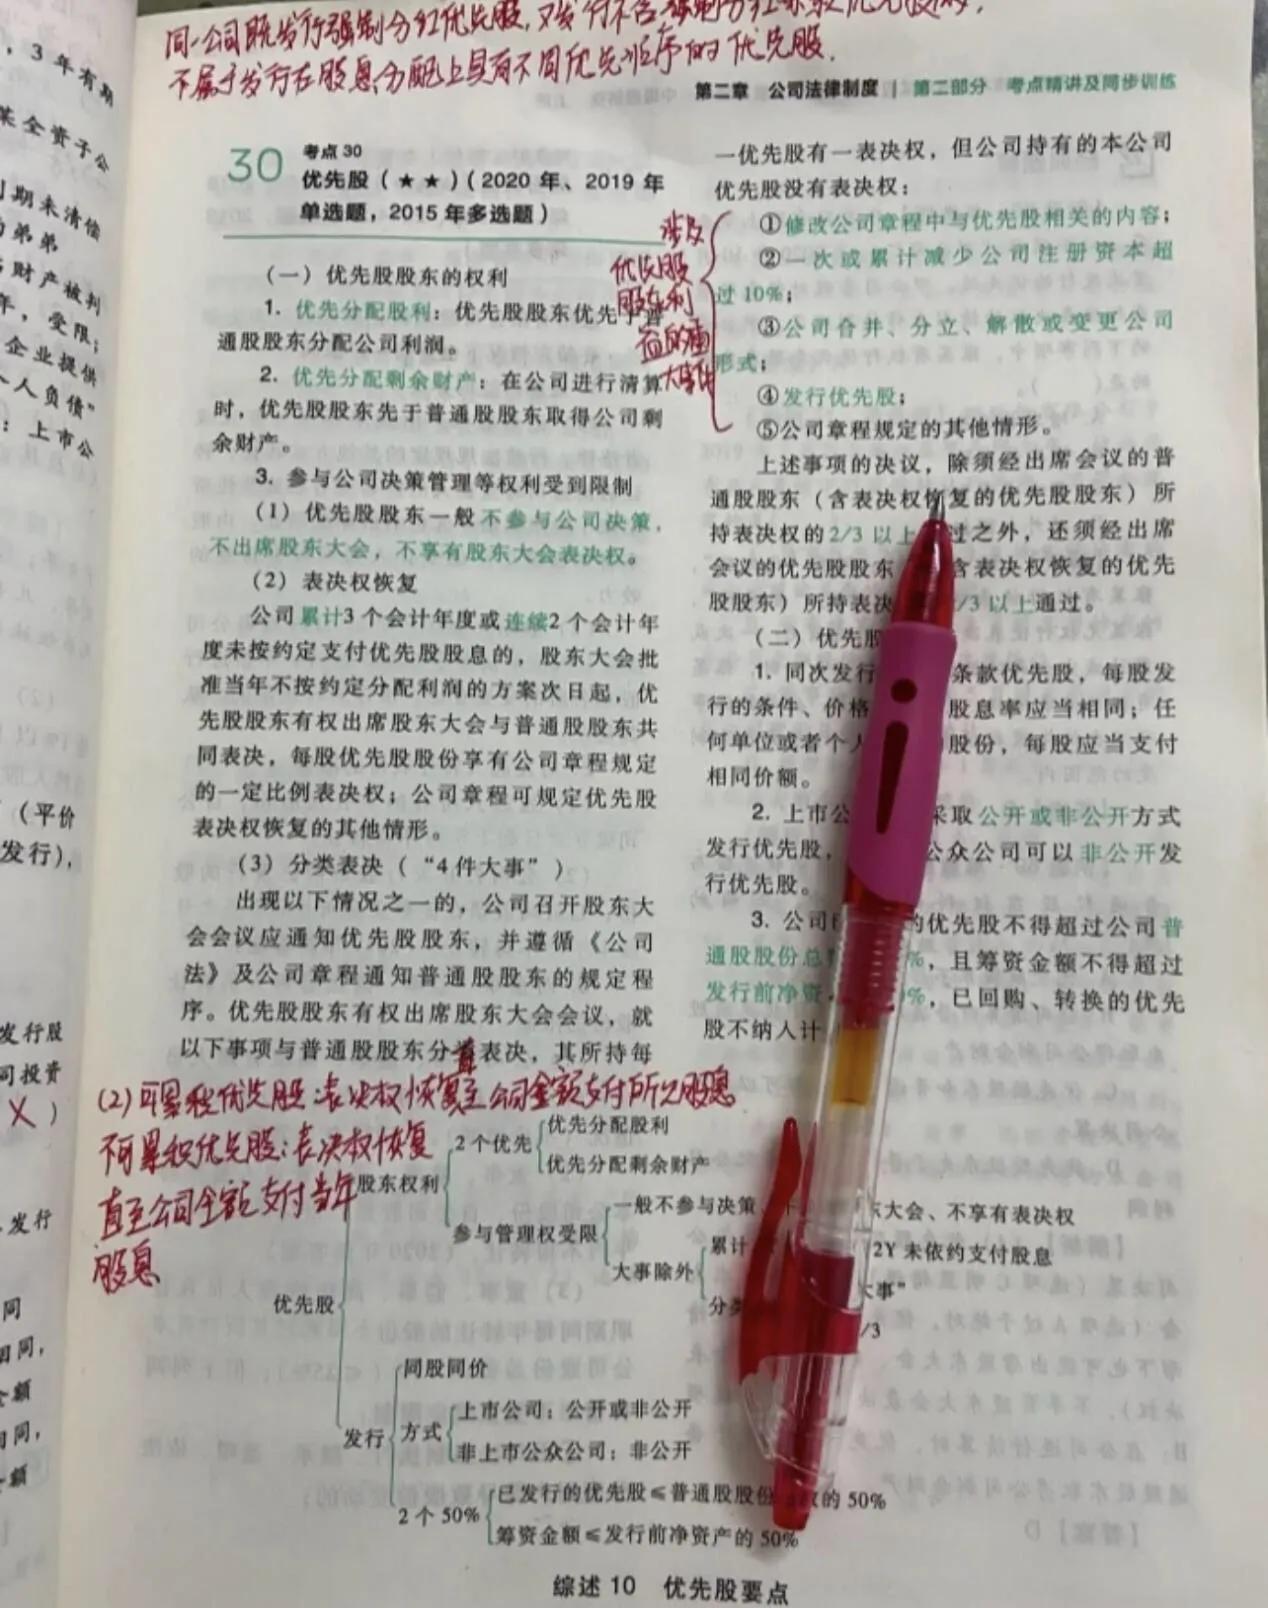 同一公司既发行强制分红优先股，又发行不含强制分红条款优先股的，
不属于发行在股息分配上具有不同优先顺序的优先股.
第二章 公司法律制度 | 第二部分 考点精讲及同步训练
，3年有期
某全资子公
期未清偿
弟弟
财产被判
年，受限；
企业提供
个人负债”
：上市公
（平价
发行），
发行股
司投资
X ）
发行
同
相同，
金额
同，
金额
30
考点30
优先股（★★）（2020年、2019年
单选题，2015年多选题）
（一）优先股股东的权利
1. 优先分配股利：优先股股东优先于普
通股股东分配公司利润。
2. 优先分配剩余财产：在公司进行清算
时，优先股股东先于普通股股东取得公司剩
余财产。
3. 参与公司决策管理等权利受到限制
（1）优先股股东一般不参与公司决策，
不出席股东大会，不享有股东大会表决权。
（2）表决权恢复
公司累计3个会计年度或连续2个会计年
度未按约定支付优先股股息的，股东大会批
准当年不按约定分配利润的方案次日起，优
先股股东有权出席股东大会与普通股股东共
同表决，每股优先股股份享有公司章程规定
的一定比例表决权；公司章程可规定优先股
表决权恢复的其他情形。
（3）分类表决（“4件大事”）
出现以下情况之一的，公司召开股东大
会会议应通知优先股股东，并遵循《公司
法》及公司章程通知普通股股东的规定程
序。优先股股东有权出席股东大会会议，就
以下事项与普通股股东分类表决，其所持每
一优先股有一表决权，但公司持有的本公司
优先股没有表决权：
涉及
优先股
股东利
益的
大事件
①修改公司章程中与优先股相关的内容；
②一次或累计减少公司注册资本超
过10%；
③公司合并、分立、解散或变更公司
形式；
④发行优先股；
⑤公司章程规定的其他情形。
上述事项的决议，除须经出席会议的普
通股股东（含表决权恢复的优先股股东）所
持表决权的2/3以上 过之外，还须经出席
会议的优先股股东 含表决权恢复的优先
股股东）所持表决 /3以上通过。
（二）优先股
1. 同次发行 条款优先股，每股发
行的条件、价格 股息率应当相同；任
何单位或者个人 股份，每股应当支付
相同价额。
2. 上市公 采取公开或非公开方式
发行优先股， 公众公司可以非公开发
行优先股。
3. 公司 的优先股不得超过公司普
通股股份总 %，且筹资金额不得超过
发行前净资 %，已回购、转换的优先
股不纳入计
(2) 可累积优先股：表决权恢复至公司全额支付所欠股息
不可累积优先股：表决权恢复
直至公司全额支付当年
股息
优先股
股东权利
2个优先
优先分配股利
优先分配剩余财产
参与管理权受限
一般不参与决策、 东大会、不享有表决权
大事除外
累计 2Y未依约支付股息
分类 大事”
/3
发行
同股同价
方式
上市公司：公开或非公开
非上市公众公司：非公开
2个50%
已发行的优先股≤普通股股份 的50%
筹资金额≤发行前净资产的50%
综述10 优先股要点